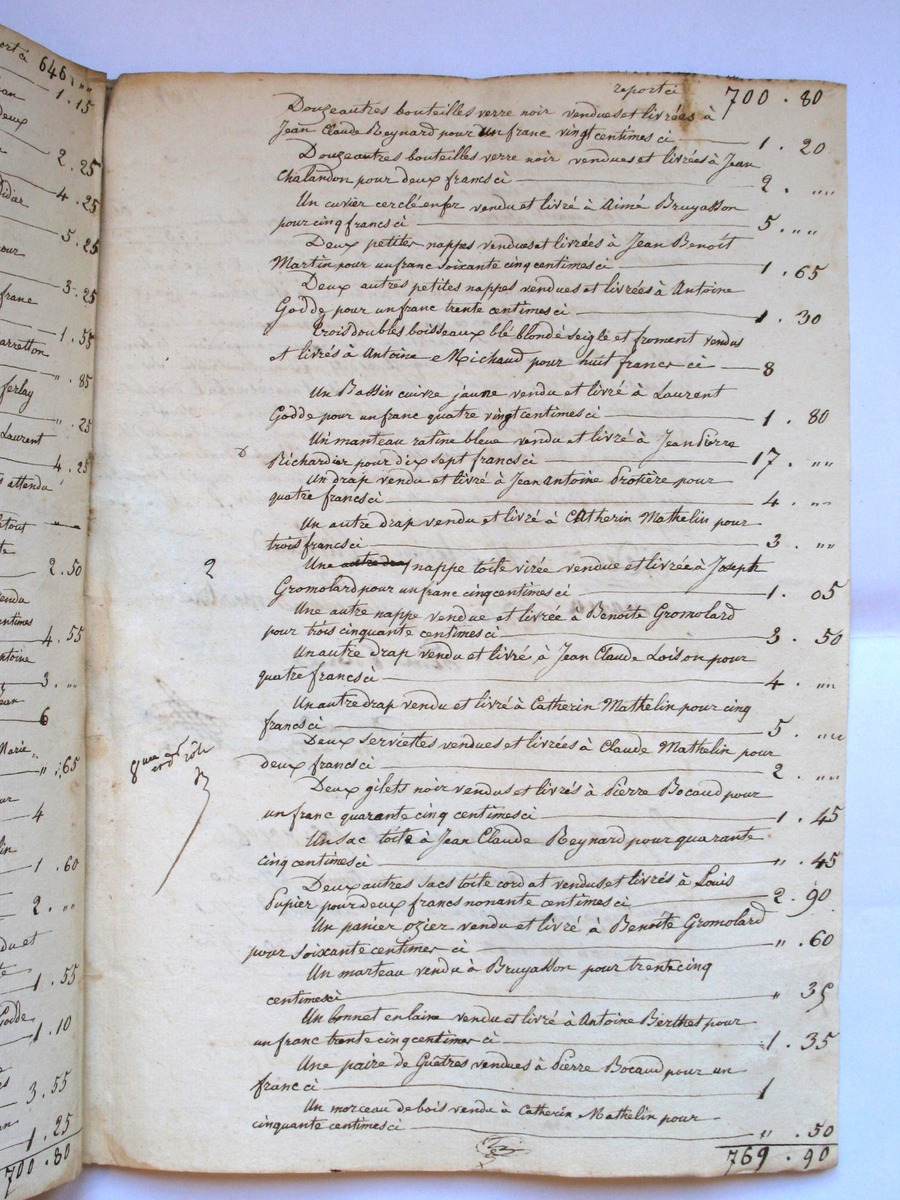 ort à 646 „„
1.15
deux
2.25
4.25
Didar
5.25
pour
3.25
franc
1.55
arretton
„ .85
ferlay
„ .25
Laurent
4.25
s attendu
2.50
vendu
centimes
4.55
antoine
3. „„
Jean
6
Marie
„ .65
4
1.60
2. „„
du et
1.55
Godde
1.10
3.55
1.25
700.80
report ci 700.80
Douze autres bouteilles verre noir vendues et livrées à
Jean Claude Reynard pour un franc vingt centimes ci 1.20
Douze autres bouteilles verre noir vendues et livrées à Jean
Chalandon pour deux francs ci 2. „„
Un cuvier cerclé en fer vendu et livré à Aimé Bruyasson
pour cinq francs ci 5. „„
Deux petites nappes vendues et livrées à Jean Benoît
Martin pour un franc soixante cinq centimes ci 1.65
Deux autres petites nappes vendues et livrées à Antoine
Godde pour un franc trente centimes ci 1.30
Trois doubles boisseaux blé blondé seigle et froment vendus
et livrés à Antoine Michaud pour huit francs ci 8
Un Bassin cuivre jaune vendu et livré à Laurent
Godde pour un franc quatre vingt centimes ci 1.80
Un manteau ratine bleue vendu et livré à Jean Pierre
Richardier pour dix sept francs ci 17. „„
Un drap vendu et livré à Jean Antoine Protière pour
quatre francs ci 4. „„
Un autre drap vendu et livré à Catherin Mathelin pour
trois francs ci 3. „„
2
Une autre drap nappe toile virée vendue et livrée à Joseph
Gromolard pour un franc cinq centimes ci 1.05
Une autre nappe vendue et livrée à Benoite Gromolard
pour trois cinquante centimes ci 3.50
Un autre drap vendu et livré à Jean Claude Loison pour
quatre francs ci 4. „„
Un autre drap vendu et livré à Catherin Mathelin pour cinq
francs ci 5. „„
Deux serviettes vendues et livrées à Claude Mathelin pour
deux francs ci 2. „„
Deux gilets noir vendus et livrés à Pierre Bocaud pour
un franc quarante cinq centimes ci 1.45
Un sac toile à Jean Claude Reynard pour quarante
cinq centimes ci „ .45
Deux autres sacs toile cordat vendus et livrés à Louis
Pupier pour deux francs nonante centimes ci 2.90
Un panier ozier vendu et livré à Benoite Gromolard
pour soixante centimes ci „ .60
Un marteau vendu à Bruyasson pour trente cinq
centimes ci „ 35
Un bonnet en laine vendu et livré à Antoine Berthet pour
un franc trente cinq centimes ci 1.35
Une paire de Guêtres vendues à Pierre Bocaud pour un
franc ci 1
Un morceau de bois vendu à Catherin Mathelin pour
cinquante centimes ci „ .50
769.90